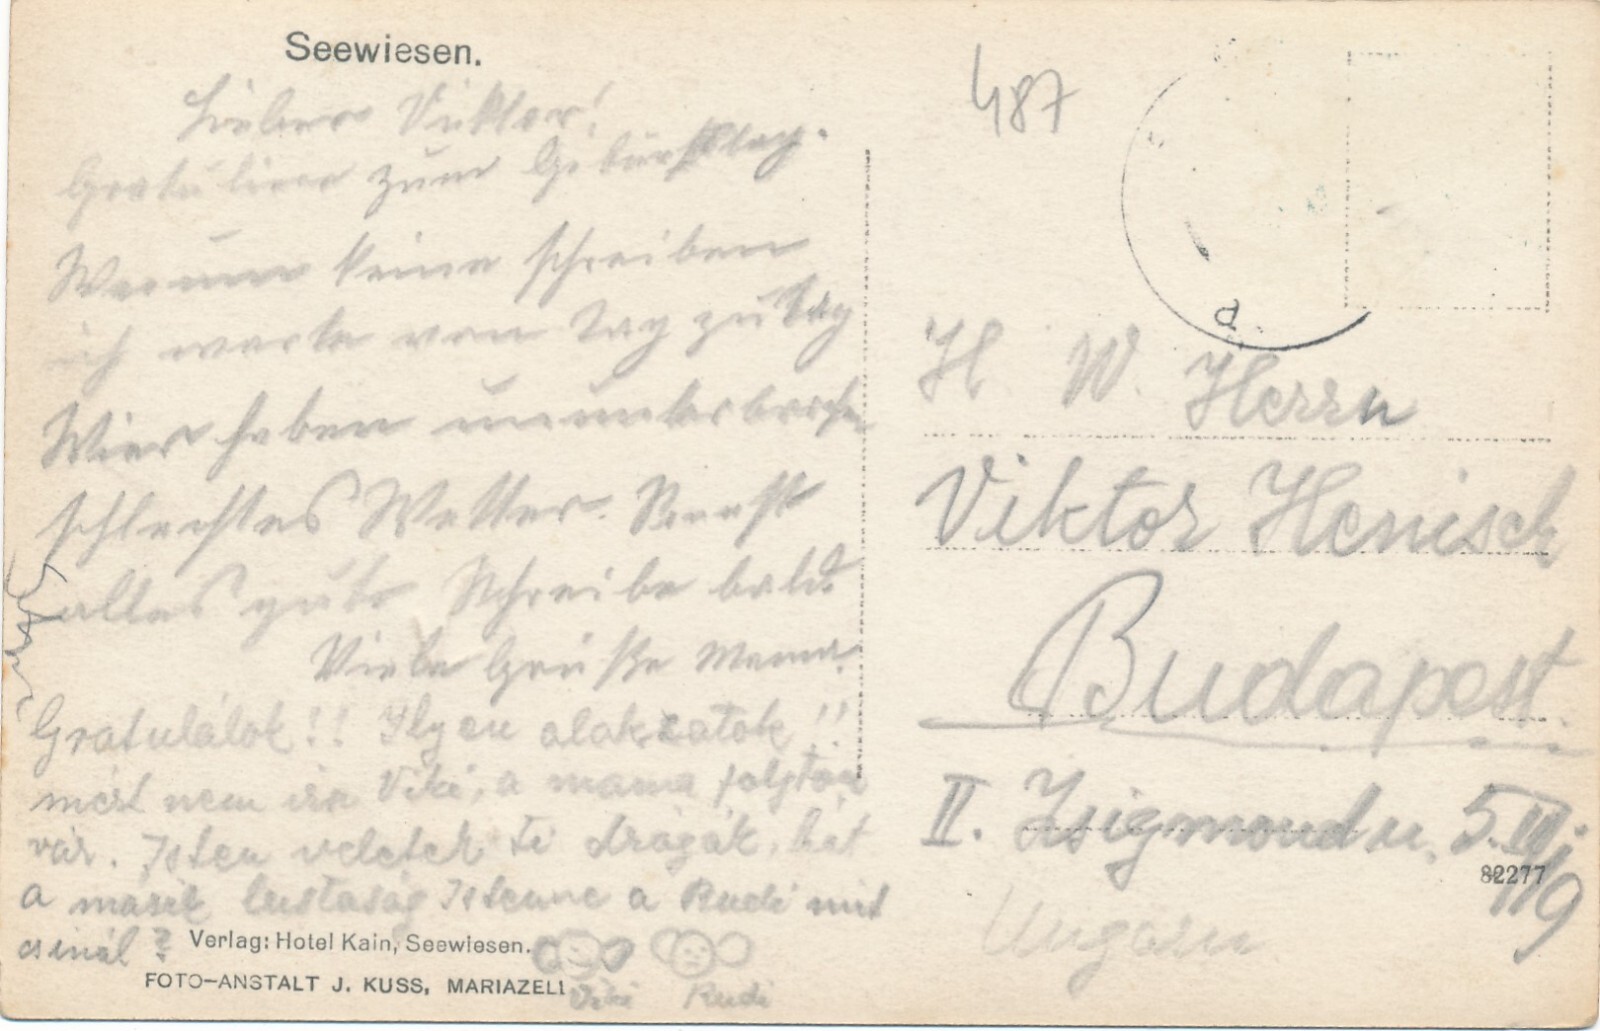 Seewiesen.
Lieber Viktor!
Gratuliere zum Geburtstag.
Warum keine schreiben
ich warte von Tag zu Tag
Wier haben ununterbroche
schlechtes Wetter. Sonst
alles gute Schreibe bald.
Viele Grüße Mama.
Gratulálok!! Ilyen alakzatok!!
mért nem ir Viki, a mama folyton
vár. Isten veletek ti drágák, hát
a másik lustaság Istenne a Rudi mit
csinál?
Verlag: Hotel Kain, Seewiesen.
FOTO-ANSTALT J. KUSS, MARIAZELL
Viki Rudi
487
H. W. Herrn
Viktor Henisch
Budapest.
II. Zsigmond u. 5. III/9
82277
Ungarn